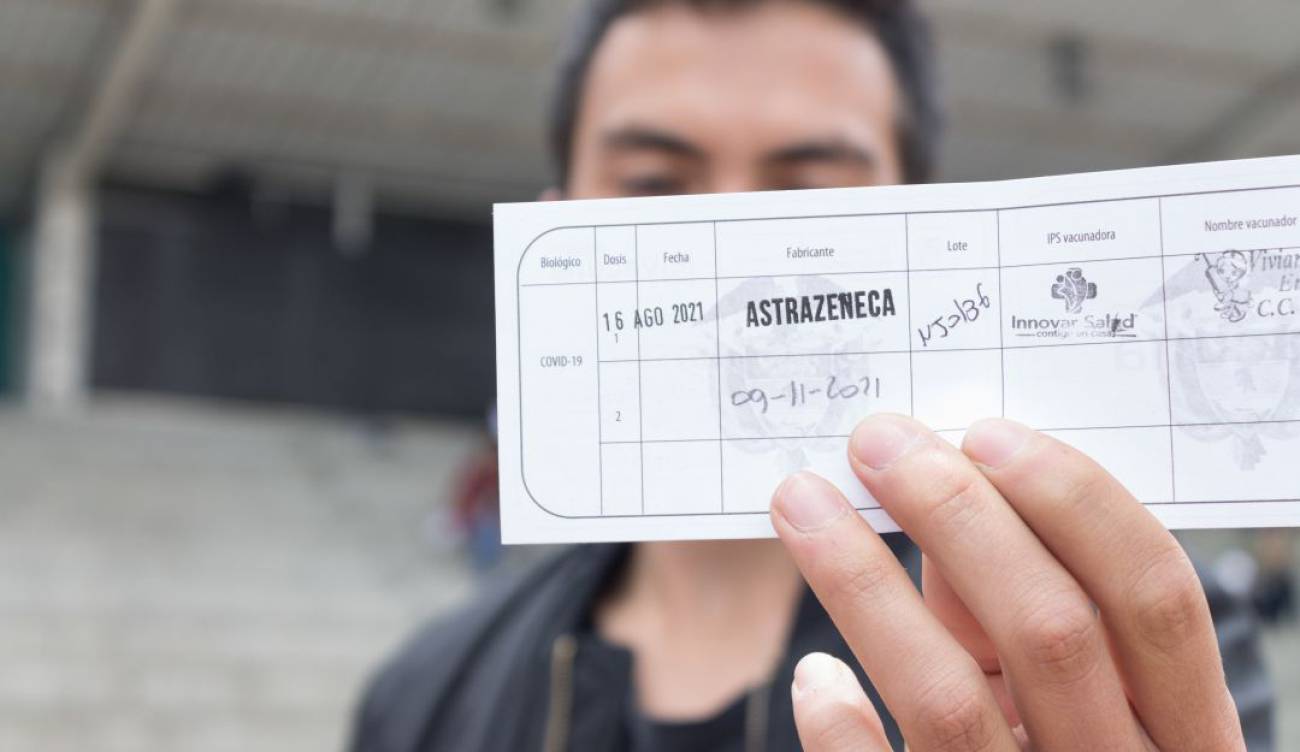 Biológico Dosis Fecha Fabricante Lote IPS vacunadora Nombre vacunador
COVID-19 16 AGO 2021 ASTRAZENECA Innovar Salud
contigo en casa
1
C.C.
2 09-11-2021